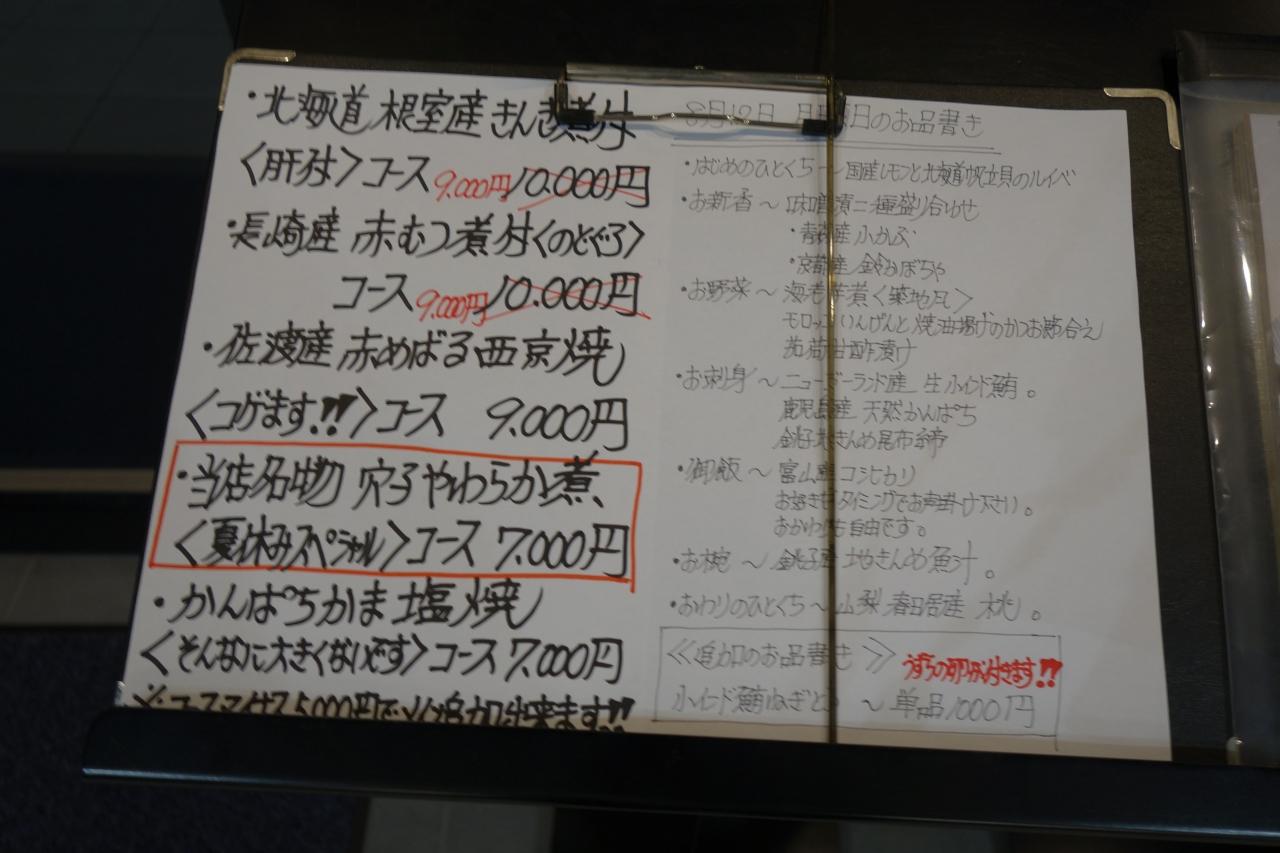 ・北海道 根室産 きんき煮付
〈肝付〉コース 9.000円 10.000円
・長崎産 赤むつ煮付〈のどぐろ〉
コース 9.000円 10.000円
・佐渡産 赤めばる西京焼
〈コゲます!!〉コース 9.000円
・当店名物 穴子やわらか煮、
〈夏休みスペシャル〉コース 7.000円
・かんぱちかま塩焼
〈そんなに大きくないです〉コース 7.000円
5.000円で 追加出来ます!!
8月19日 のお品書き
・はじめのひとくち〜国産レモンと北海道帆立貝のルイベ
・お新香〜味噌漬二種盛り合わせ
・青森産 小かぶ
・京都産 鈴かぼちゃ
・お野菜〜海老芋煮〈築地風〉
モロッコいんげんと焼油揚げのかつお節合え
茗荷甘酢漬け
・お刺身〜ニュージーランド産 生小インド鮪。
鹿児島産 天然かんぱち
銚子地きんめ昆布〆
・御飯〜富山県コシヒカリ
お好きなタイミングでお声掛け下さい。
おかわりも自由です。
・お椀〜銚子産 地きんめ魚汁。
・おわりのひとくち〜山梨 春日居産 桃。
≪追加のお品書き≫ うずらの卵が付きます!!
小インド鮪ねぎとろ〜単品1000円